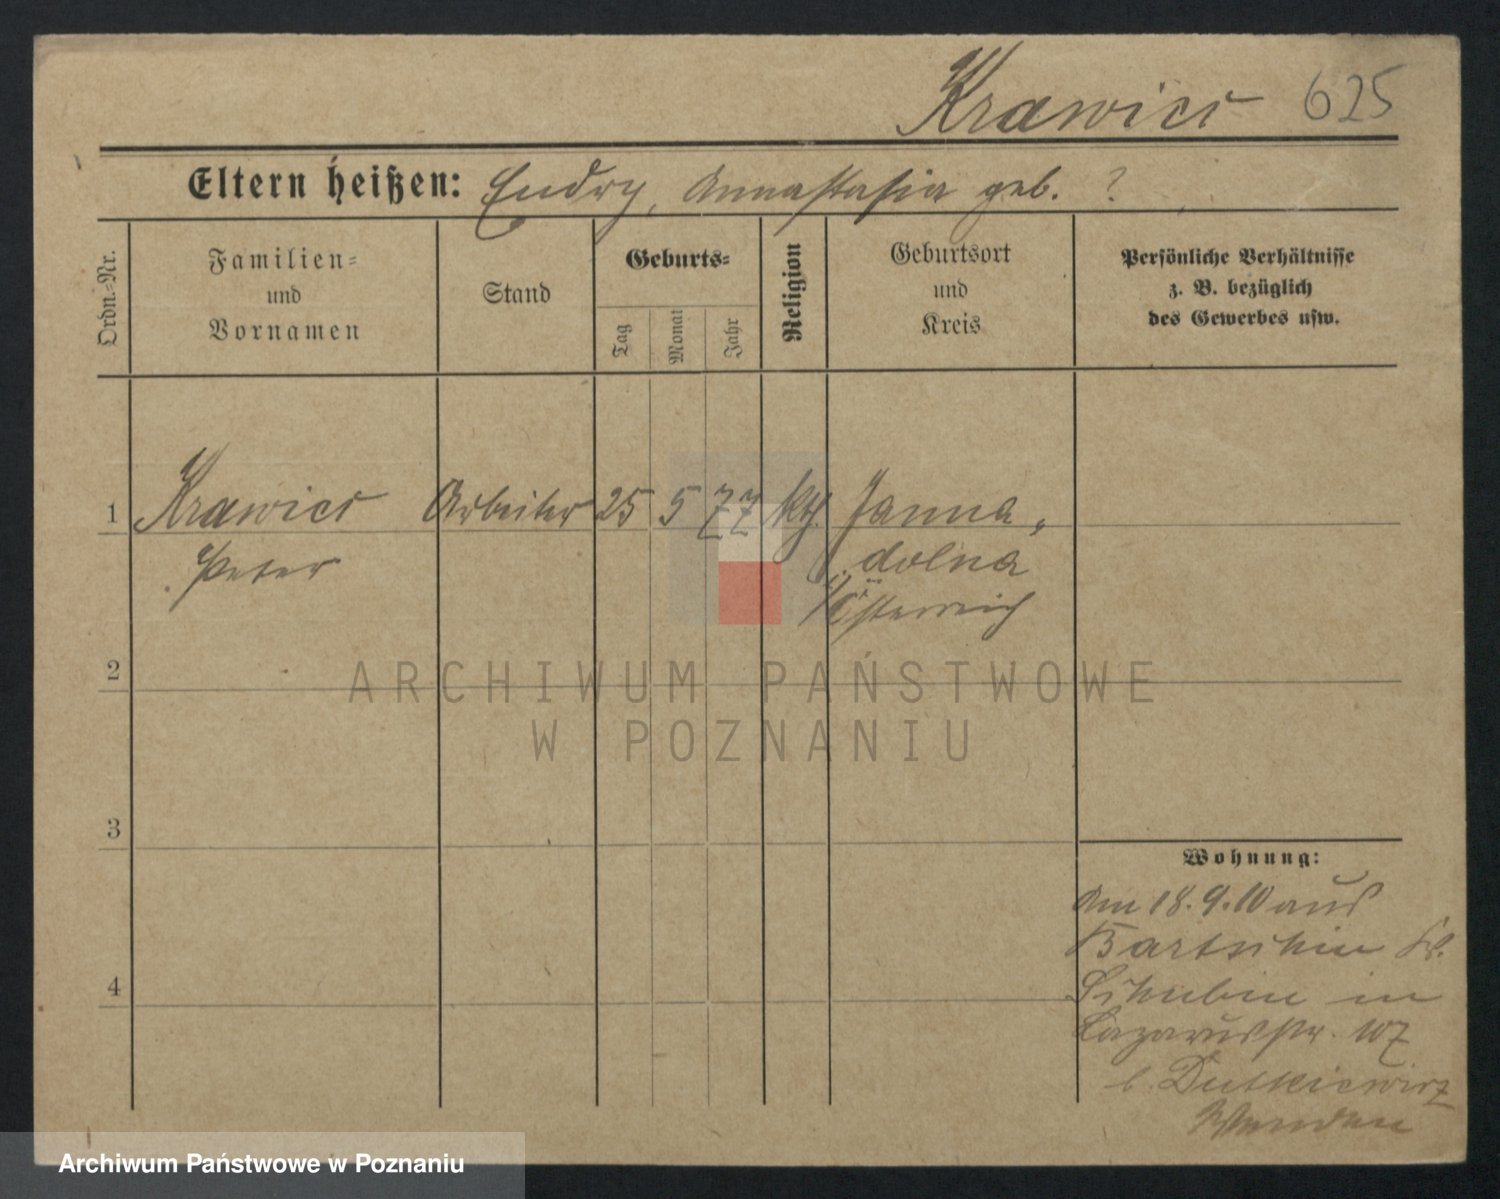 Krawics 625
Eltern heißen: Endry, Annastasia geb. ?
Ordn.-Nr.
Familien=
und
Vornamen
Stand
Geburts=
Tag
Monat
Jahr
Religion
Geburtsort
und
Kreis
Persönliche Verhältnisse
z. B. bezüglich
des Gewerbes usw.
1 Krawics Arbeiter 25 5 77 kth. Janna,
Peter dolna
i/Österreich
2
ARCHIWUM PAŃSTWOWE
W POZNANIU
3
Wohnung:
Am 18.9.10 aus
Bartschin Kr.
4 Schubin in
Lazarusstr. 107
b. Dutkiewicz
Archiwum Państwowe w Poznaniu